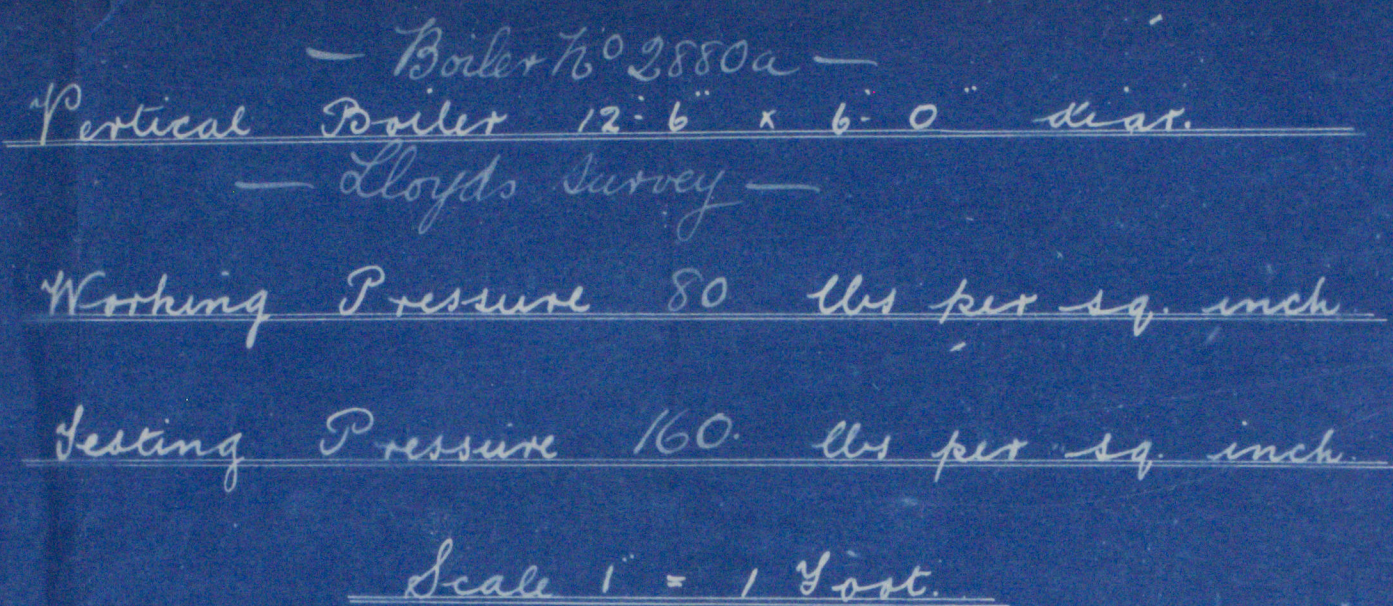 — Boiler No 2880a —
Vertical Boiler 12'-6" x 6'-0" diar.
— Lloyds Survey —
Working Pressure 80 lbs per sq. inch
Testing Pressure 160. lbs per sq. inch.
Scale 1" = 1 Foot.